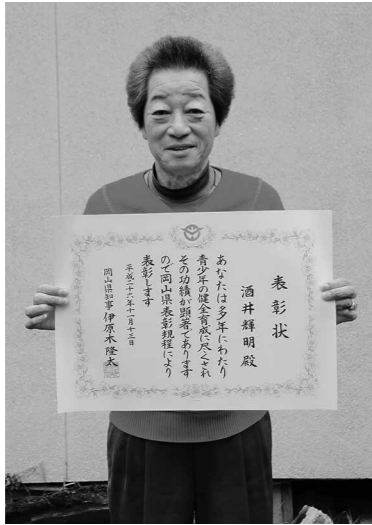 表彰状
酒井輝明殿
あなたは多年にわたり
青少年の健全育成に尽くされ
その功績が顕著であります
ので岡山県表彰規程により
表彰します
平成二十六年十一月十三日
岡山県知事 伊原木隆太